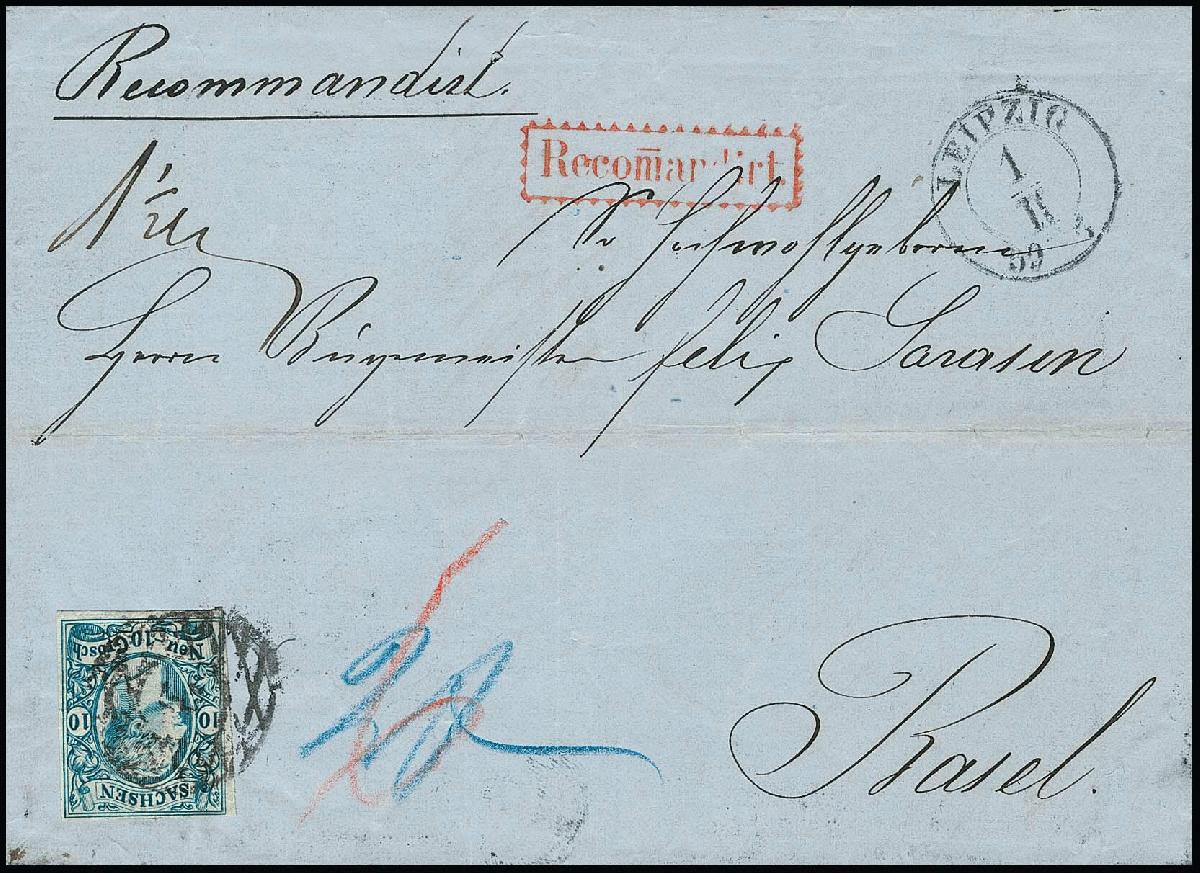 Recommandirt.
Recom̄andirt.
LEIPZIG
1
II
59
Sr Hochwohlgeboren
Herrn Bürgermeister Felix Sarasin
Basel.
Neu-10Grosch
10
10
SACHSEN